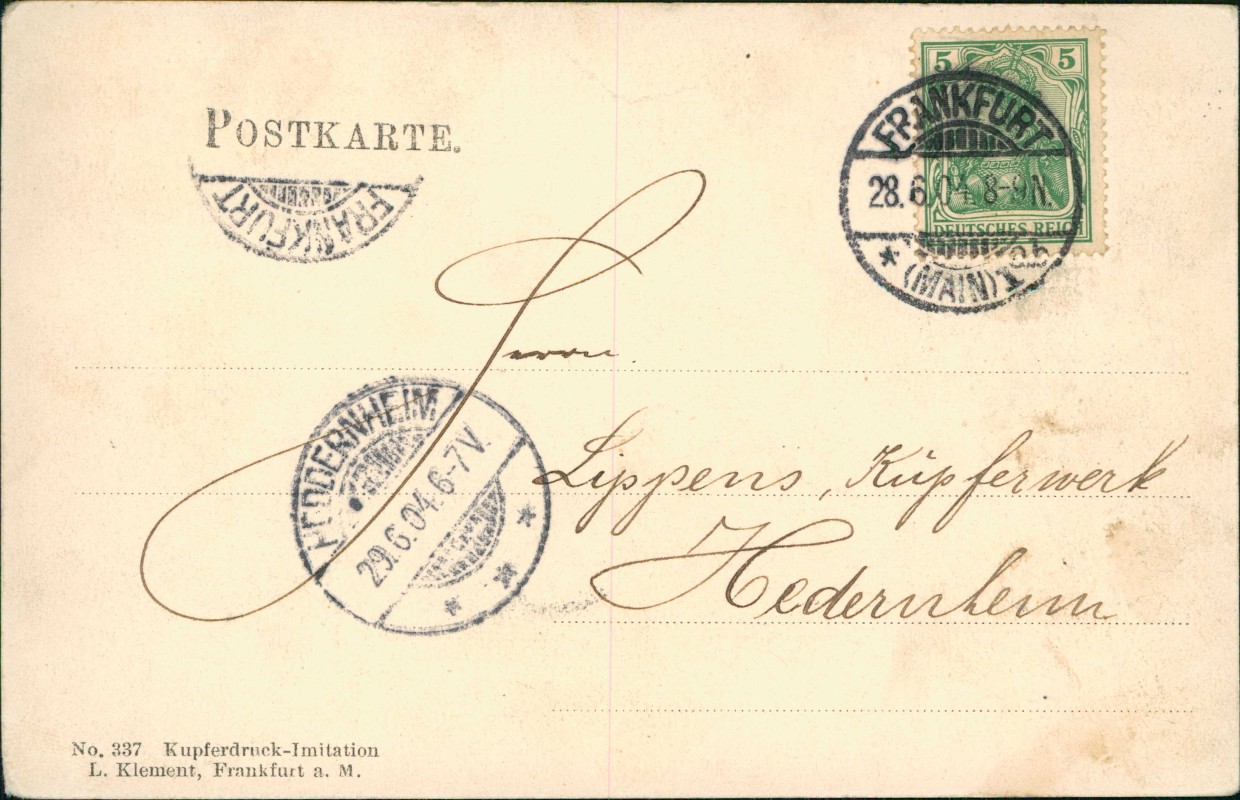 5 5
DEUTSCHES REICH
FRANKFURT
28.6.04. 8-9N.
* (MAIN) 1
POSTKARTE.
FRANKFURT
Herrn
HEDDERNHEIM
29.6.04. 6-7V.
* * *
Lippens, Kŭpferwerk
Hedernheim
No. 337 Kupferdruck-Imitation
L. Klement, Frankfurt a. M.